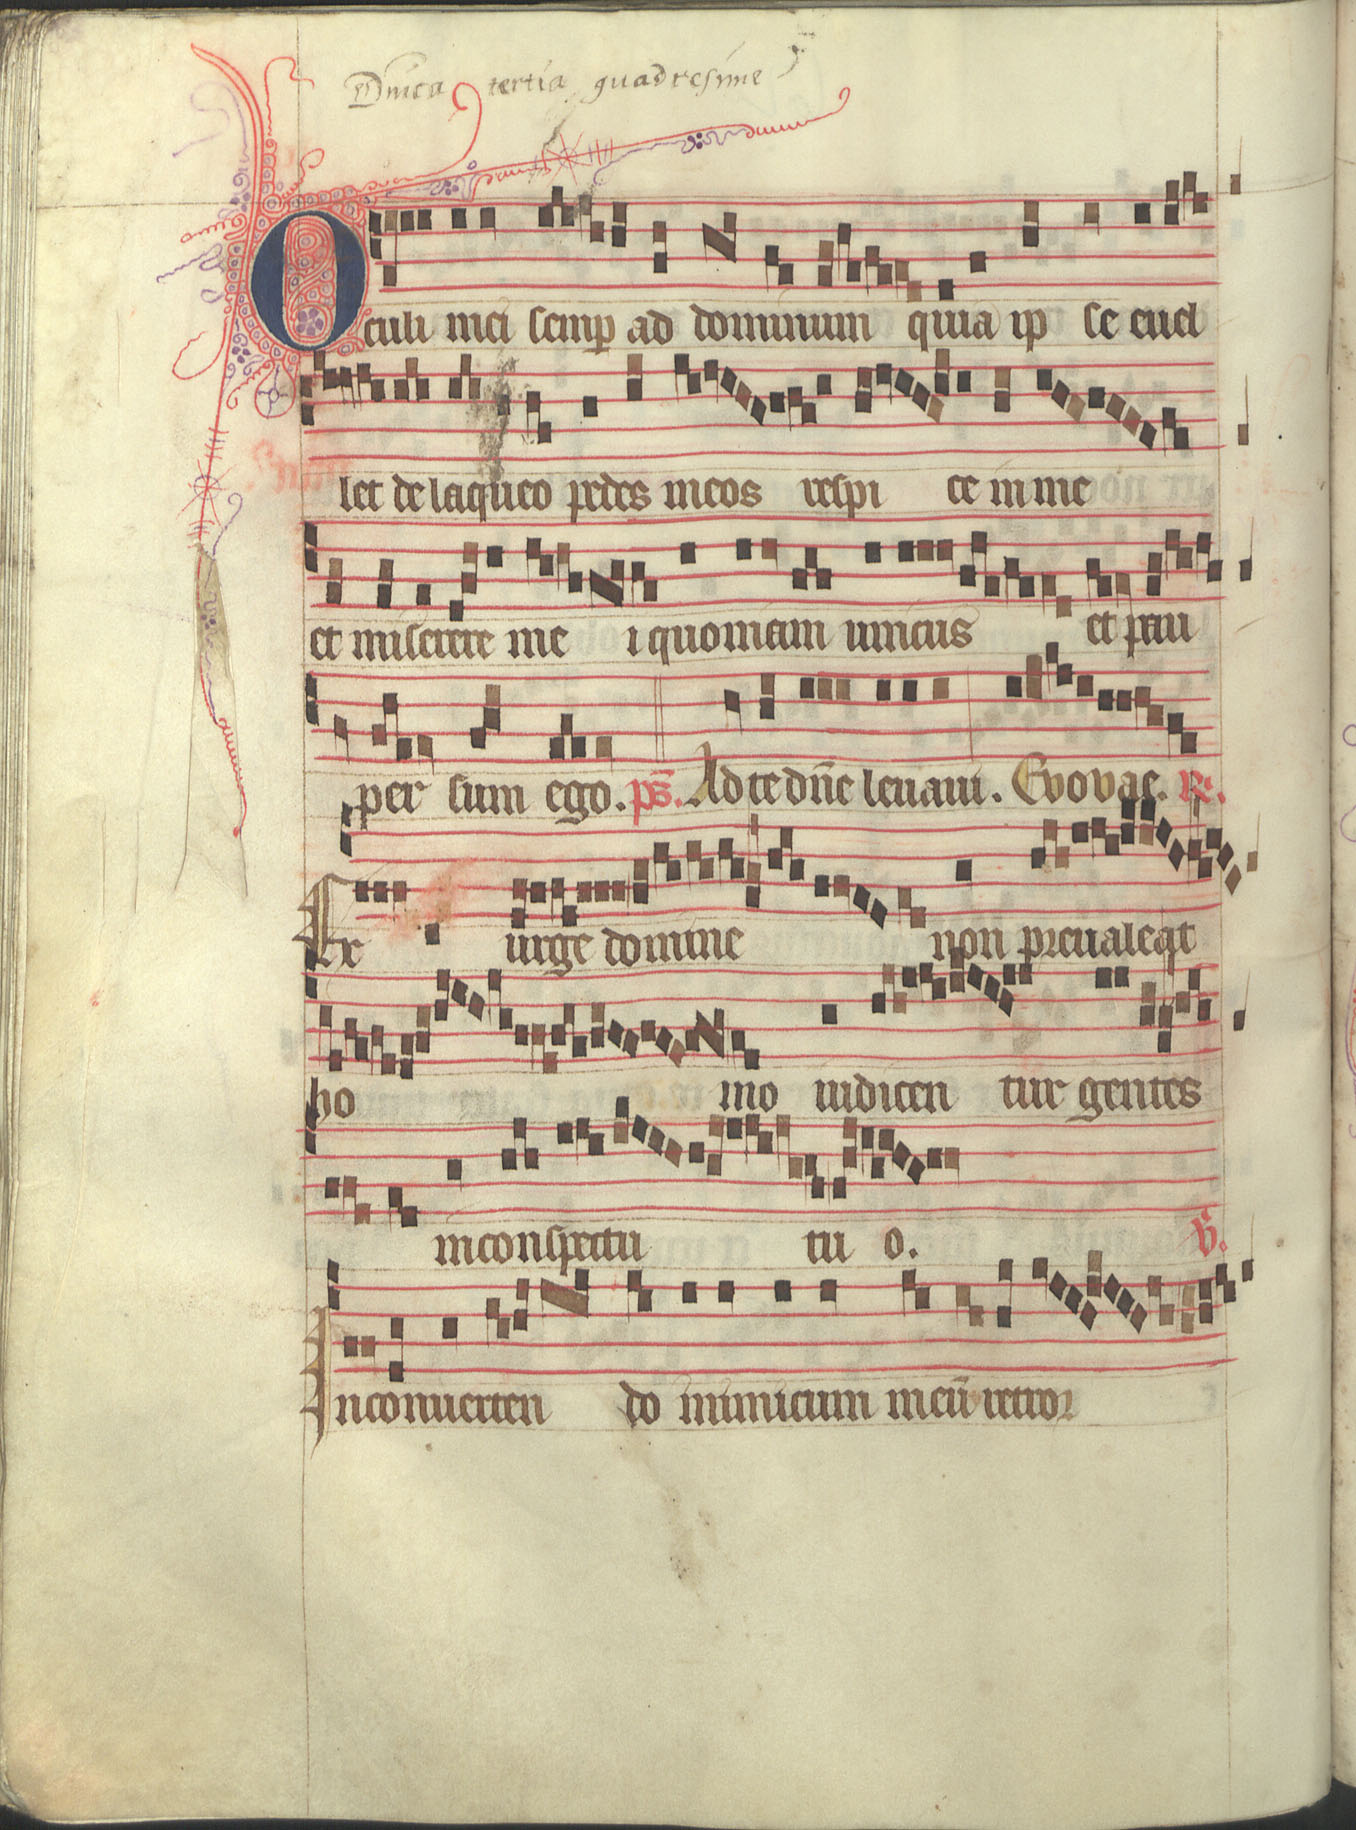 Dnica tertia quadresime
Oculi mei semp ad dominum quia ip se euel
let de laqueo pedes meos respi ce in me
et miserere me i quoniam unicus et pau
per sum ego. ps. Ad te dn̄e leuaui. Euouae. R.
Ex urge domine non preualeat
ho mo iudicen tur gentes
in conspectu tu o. V.
In conuerten do inimicum meū retror